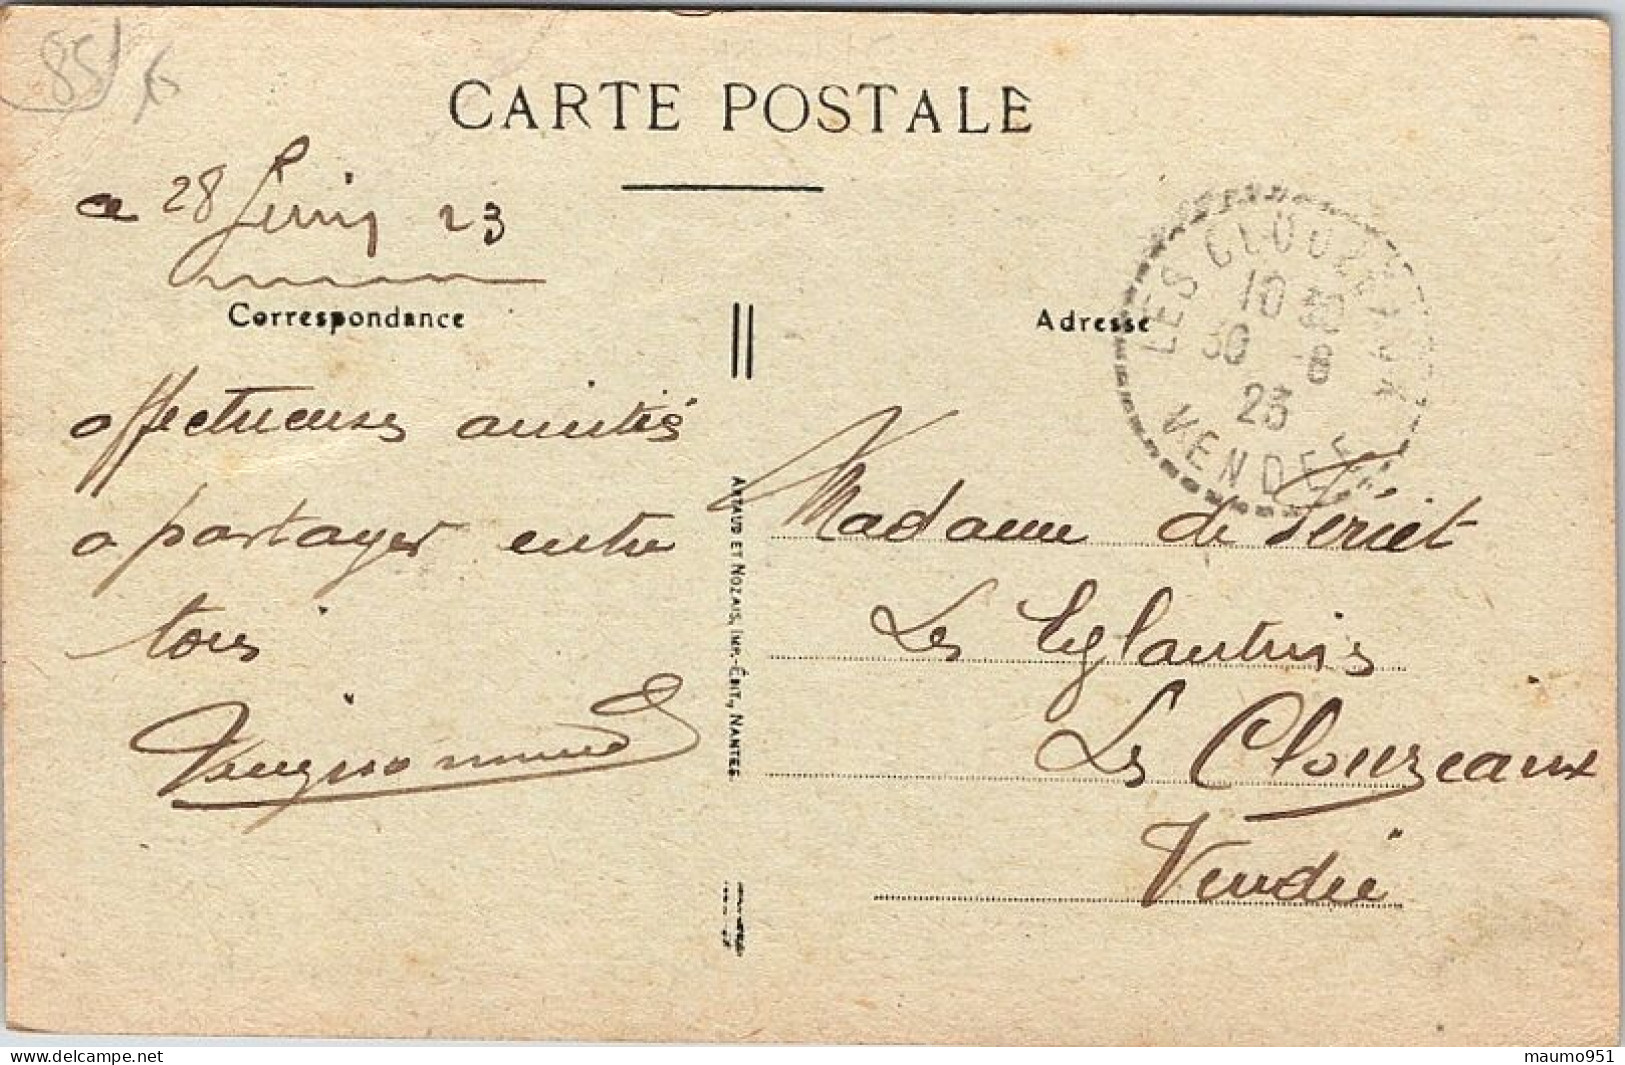 85
CARTE POSTALE
ce 28 Juin 23
Correspondance
Adresse
LES CLOUZEAUX
10 30
30 -6
23
VENDEE
affectueuses amitiés
a partager entre
tous
ARTAUD ET NOZAIS, IMP.-ÉDIT., NANTES
Madame de
Les Eglantines
Les Clouzeaux
Vendée
maumo951